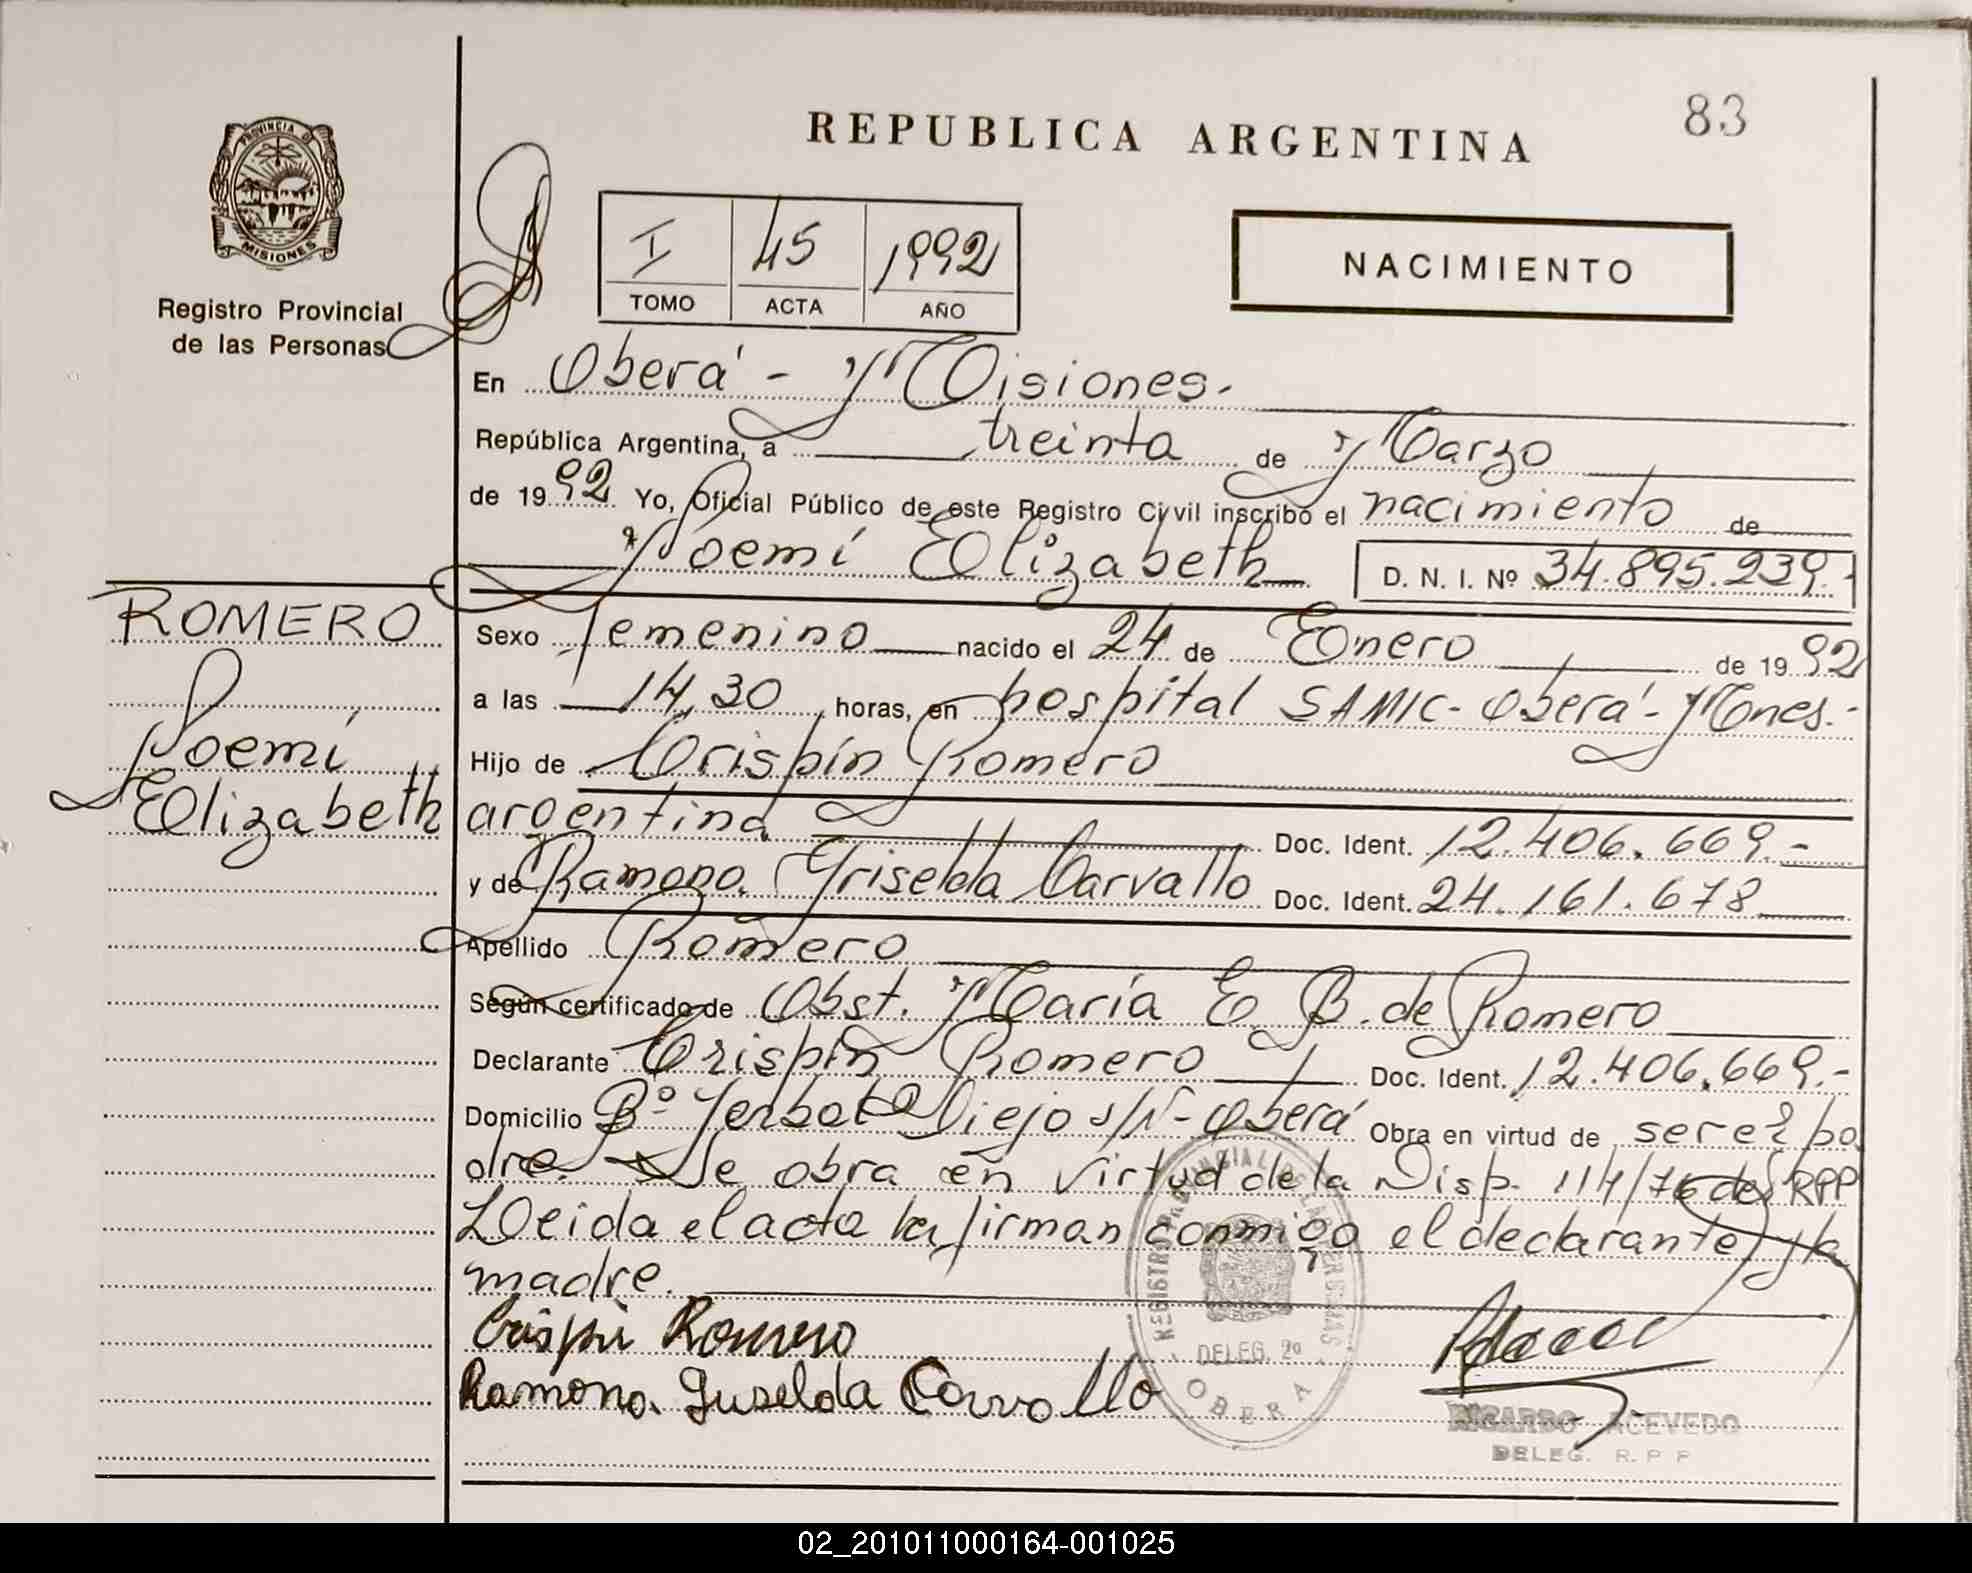 83
REPUBLICA ARGENTINA
PROVINCIA DE
MISIONES
Registro Provincial
de las Personas
I 45 1992
TOMO ACTA AÑO
NACIMIENTO
En Oberá - Misiones.
República Argentina, a treinta de Marzo
de 1992 Yo, Oficial Público de este Registro Civil inscribo el nacimiento de
Noemí Elizabeth D. N. I. Nº 34.895.239.-
ROMERO
Noemí
Elizabeth
Sexo femenino nacido el 24 de Enero de 1992
a las 14,30 horas, en hospital SAMIC - Oberá - Mnes.-
Hijo de Crispín Romero
argentina Doc. Ident. 12.406.669.-
y de Ramona Griselda Carvallo Doc. Ident. 24.161.678
Apellido Romero
Según certificado de Obst. María E. B. de Romero
Declarante Crispín Romero Doc. Ident. 12.406.669.-
Domicilio Bº Yerbal Viejo s/N - Oberá Obra en virtud de ser el pa
dre. Se obra en virtud de la Disp. 114/76 del RPP
Leida el acta la firman conmigo el declarante y la
madre.
Crispin Romero
Ramona Griselda Carvallo
REGISTRO PROVINCIAL DE LAS PERSONAS
DELEG. 2a
OBERA
RICARDO ACEVEDO
DELEG. R. P. P.
02_201011000164-001025